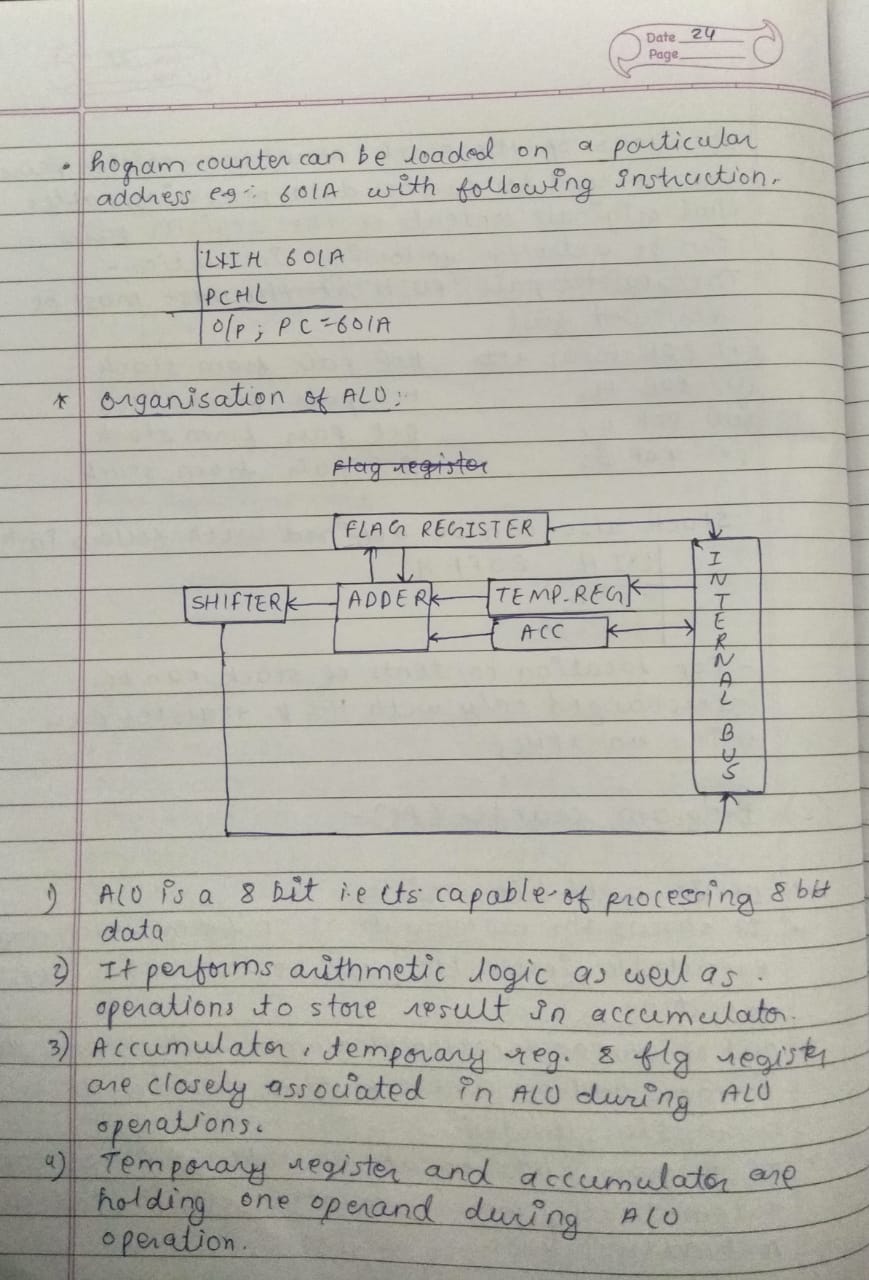 Date 24
Page
• Program counter can be loaded on a particular
address eg:- 601A with following instruction.
LXIH 601A
PCHL
O/P ; PC=601A
* Organisation of ALU:
Flag register
FLAG REGISTER
SHIFTER
ADDER
TEMP.REG
ACC
INTERNAL BUS
1) ALU is a 8 bit i.e its capable of processing 8 bit
data
2) It performs arithmetic logic as well as
operations to store result in accumulator.
3) Accumulator, temporary reg. & flg register
are closely associated in ALU during ALU
operations.
4) Temporary register and accumulator are
holding one operand during ALU
operation.